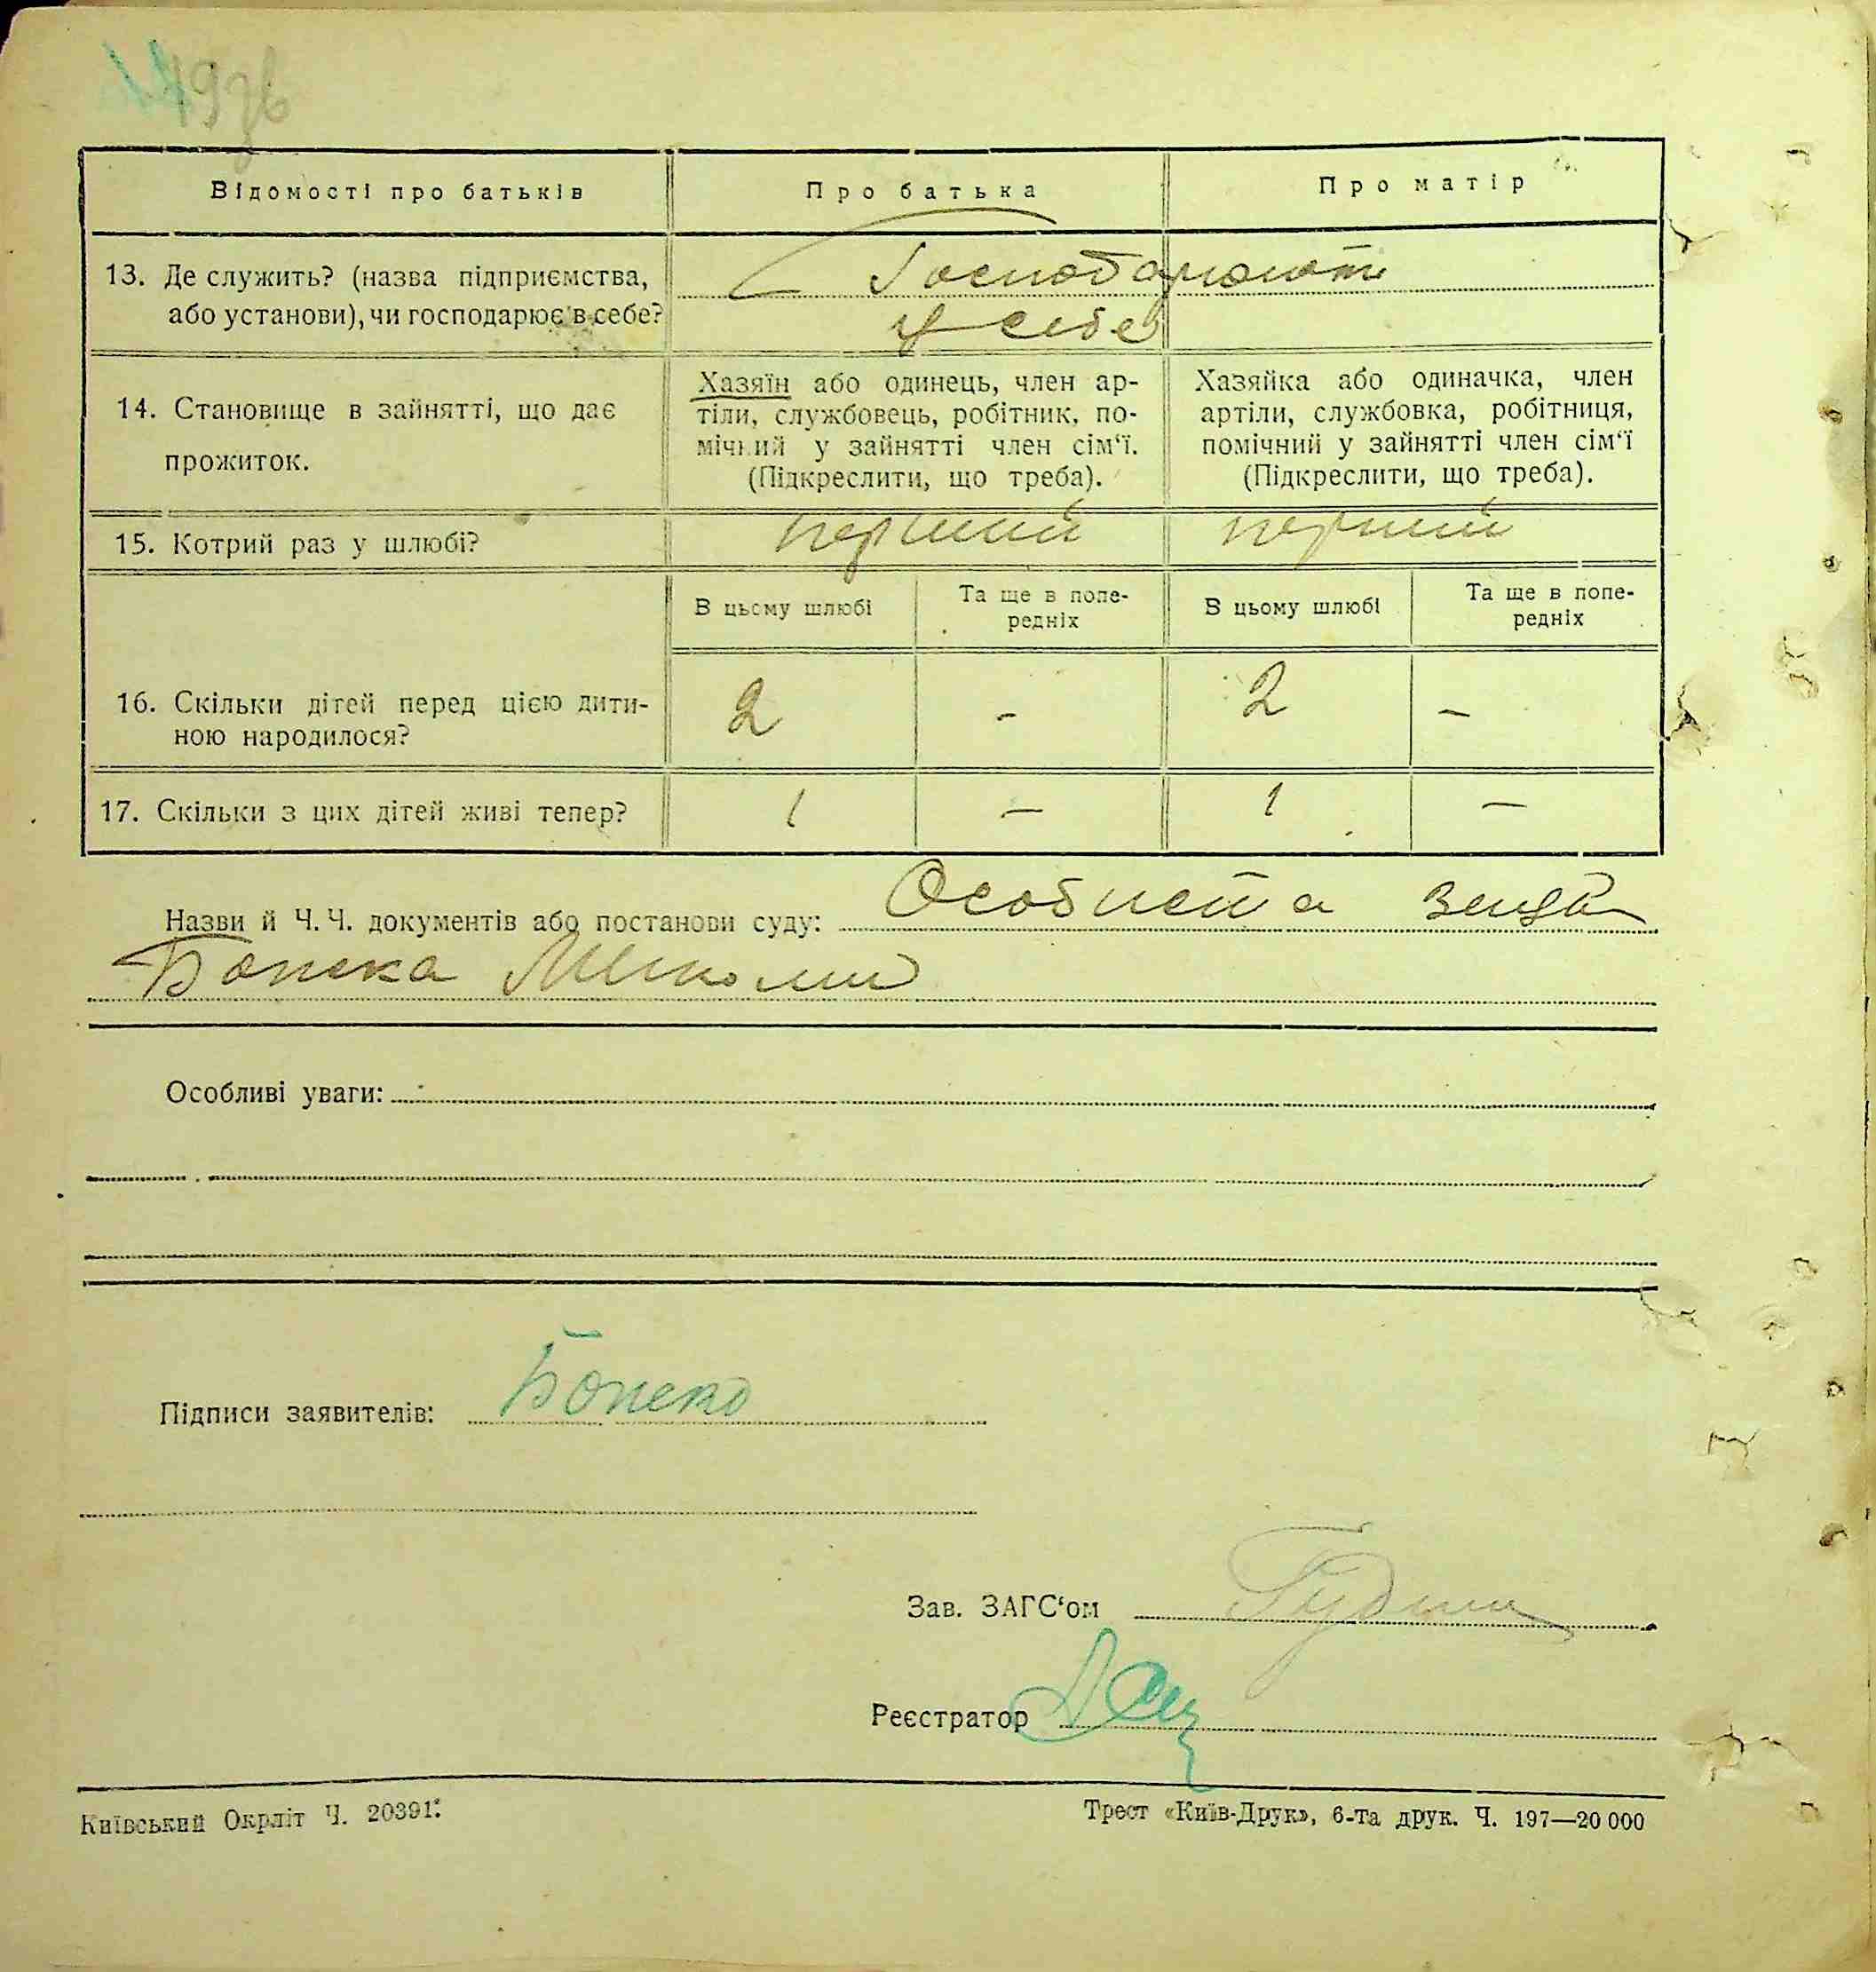 Відомості про батьків
Про батька
Про матір
13. Де служить? (назва підприємства,
або установи), чи господарює в себе?
Господарюють
у себе
14. Становище в зайнятті, що дає
прожиток.
Хазяїн або одинець, член ар-
тіли, службовець, робітник, по-
мічний у зайнятті член сім‘ї.
(Підкреслити, що треба).
Хазяйка або одиначка, член
артіли, службовка, робітниця,
помічний у зайнятті член сім‘ї
(Підкреслити, що треба).
15. Котрий раз у шлюбі?
перший
перший
В цьому шлюбі
Та ще в попе-
редніх
В цьому шлюбі
Та ще в попе-
редніх
16. Скільки дітей перед цією дити-
ною народилося?
2
-
2
-
17. Скільки з цих дітей живі тепер?
1
—
1
—
Назви й Ч. Ч. документів або постанови суду: Особиста
Бопска
Особливі уваги:
Підписи заявителів: Бопско
Зав. ЗАГС‘ом
Реєстратор
Київський Окрліт Ч. 20391.
Трест «Київ-Друк», 6-та друк. Ч. 197—20 000